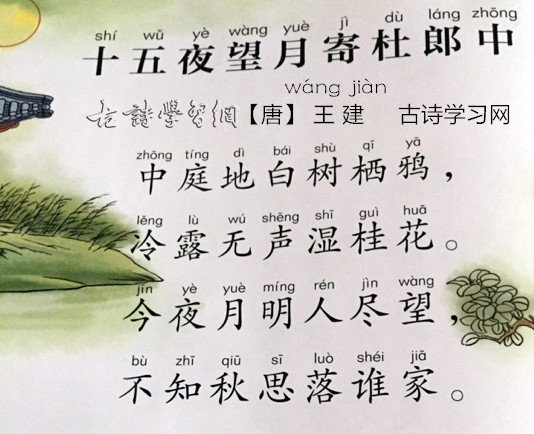 shí wǔ yè wàng yuè jì dù láng zhōng
十五夜望月寄杜郎中
wáng jiàn
古诗学习网【唐】 王 建 古诗学习网
zhōng tíng dì bái shù qī yā
中庭地白树栖鸦，
lěng lù wú shēng shī guì huā
冷露无声湿桂花。
jīn yè yuè míng rén jìn wàng
今夜月明人尽望，
bù zhī qiū sī luò shéi jiā
不知秋思落谁家。